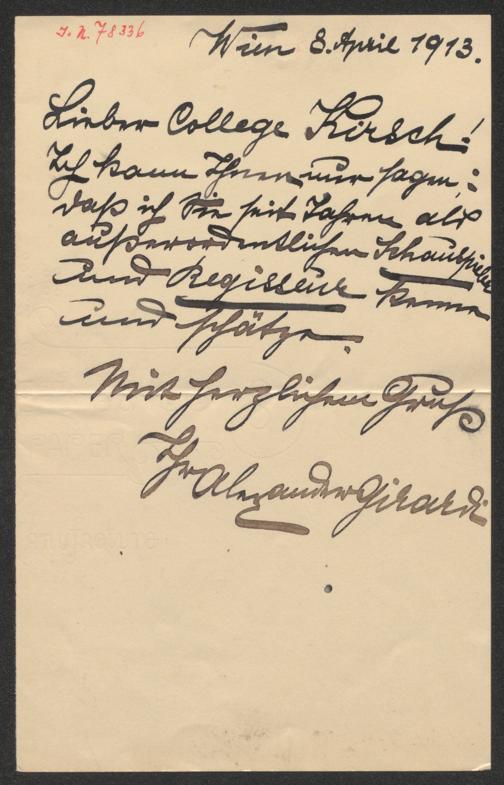 J. N. 78336
Wien 8. April 1913.
Lieber College Kirsch!
Ich kann Ihnen nur sagen:
daß ich Sie seit Jahren als
außerordentlichen Schauspieler
und Regisseur kenne
und schätze.
Mit herzlichem Gruß
Ihr Alexander Girardi